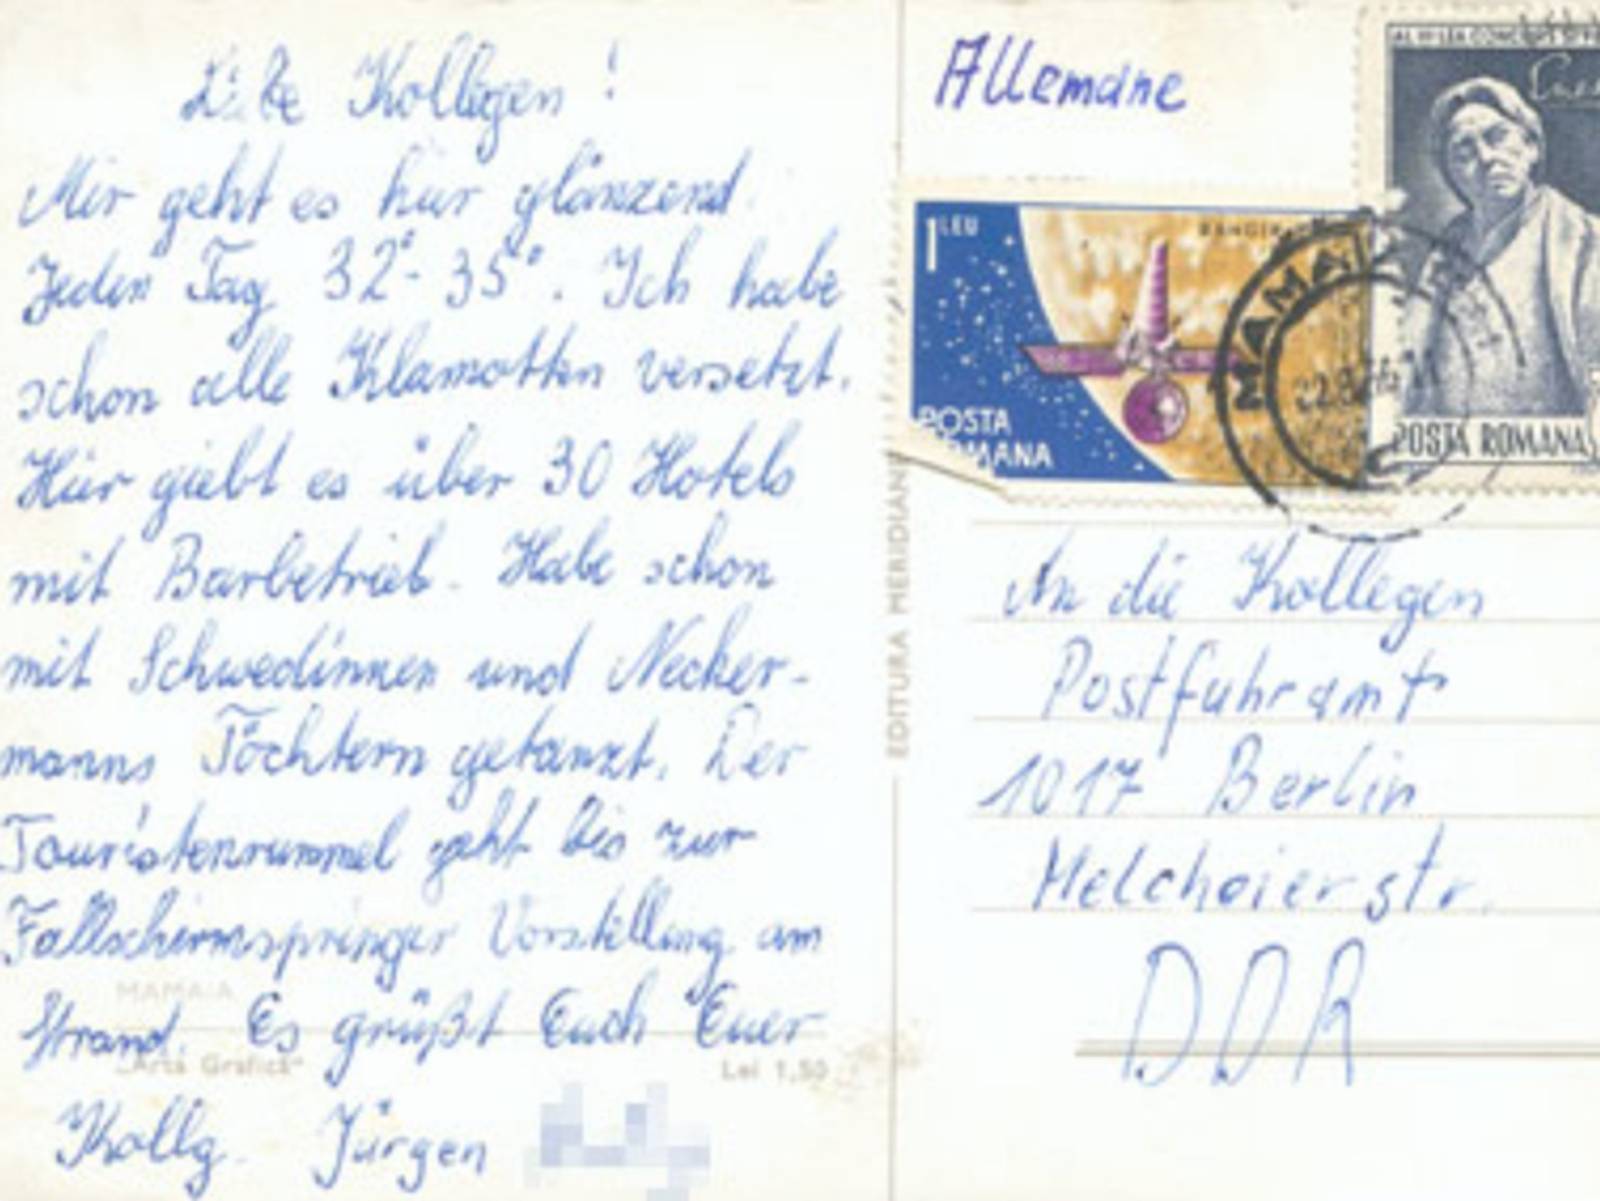 Liebe Kollegen!
Mir geht es hier glänzend.
Jeden Tag 32°- 35°. Ich habe
schon alle Klamotten versetzt.
Hier giebt es über 30 Hotels
mit Barbetrieb. Habe schon
mit Schwedinnen und Necker-
manns Töchtern getanzt. Der
Touristenrummel geht bis zur
Fallschirmspringer Vorstellung am
Strand. Es grüßt Euch Euer
Kollg. Jürgen
MAMAIA
„Arta Grafică"
Lei 1,50
EDITURA MERIDIANE
Allemane
1 LEU
RANGER
POSTA
ROMANA
MAMAIA
POSTA ROMANA
An die Kollegen
Postfuhramt
1017 Berlin
Melchoierstr.
DDR